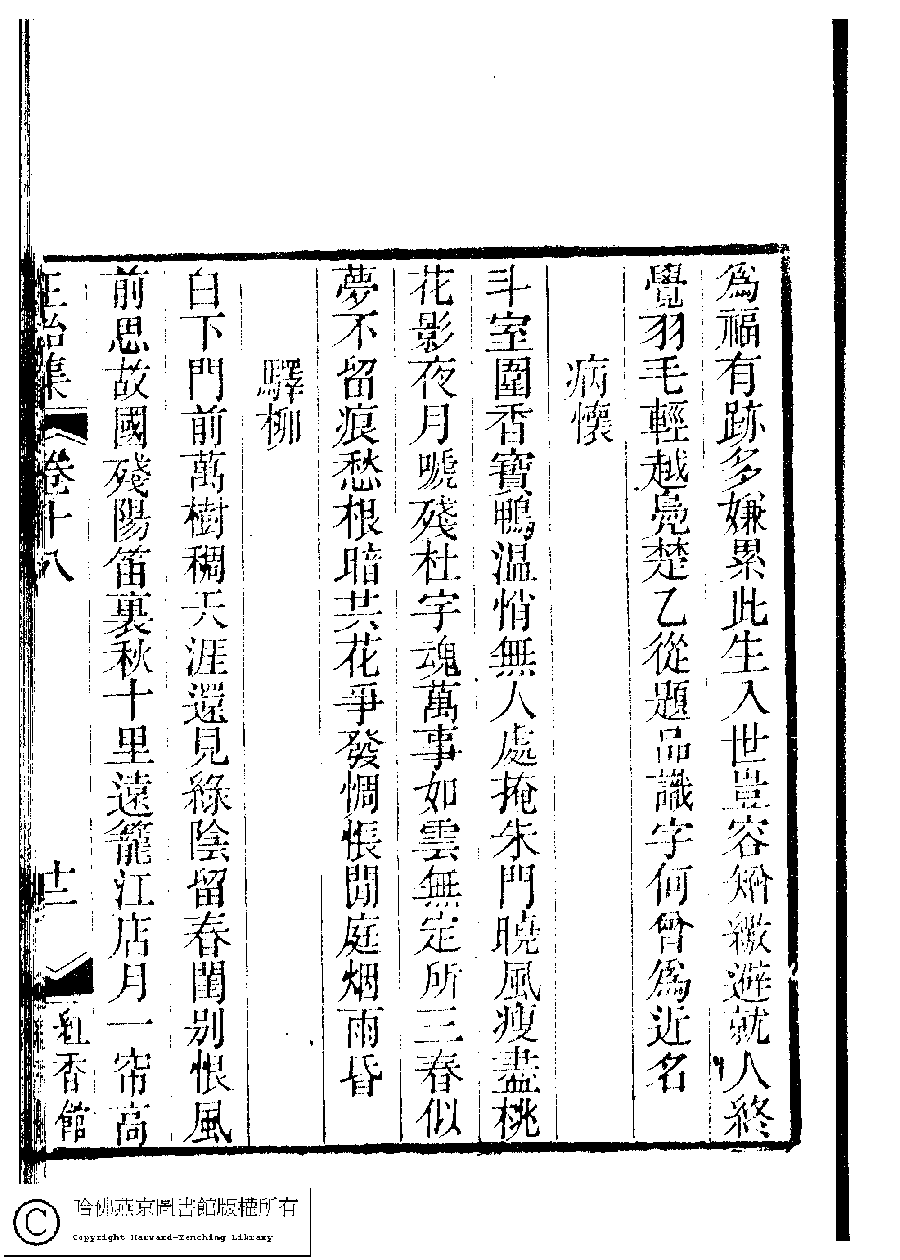 為福有跡多嫌累此生入世豈容矰繳避就人終
覺羽毛輕越鳧楚乙從題品識字何曾為近名
病懷
斗室圍香寶鴨温悄無人處掩朱門曉風瘦盡桃
花影夜月嗁殘杜宇魂萬事如雲無定所三春似
夢不留痕愁根暗共花爭發惆悵閒庭烟雨昏
驛柳
白下門前萬樹稠天涯還見綠陰留春閨别恨風
前思故國殘陽笛裏秋十里遠籠江店月一帘高
正始集
卷十八
十二
紅香館
哈佛燕京圖書館版權所有
Copyright Harvard-Yenching Library